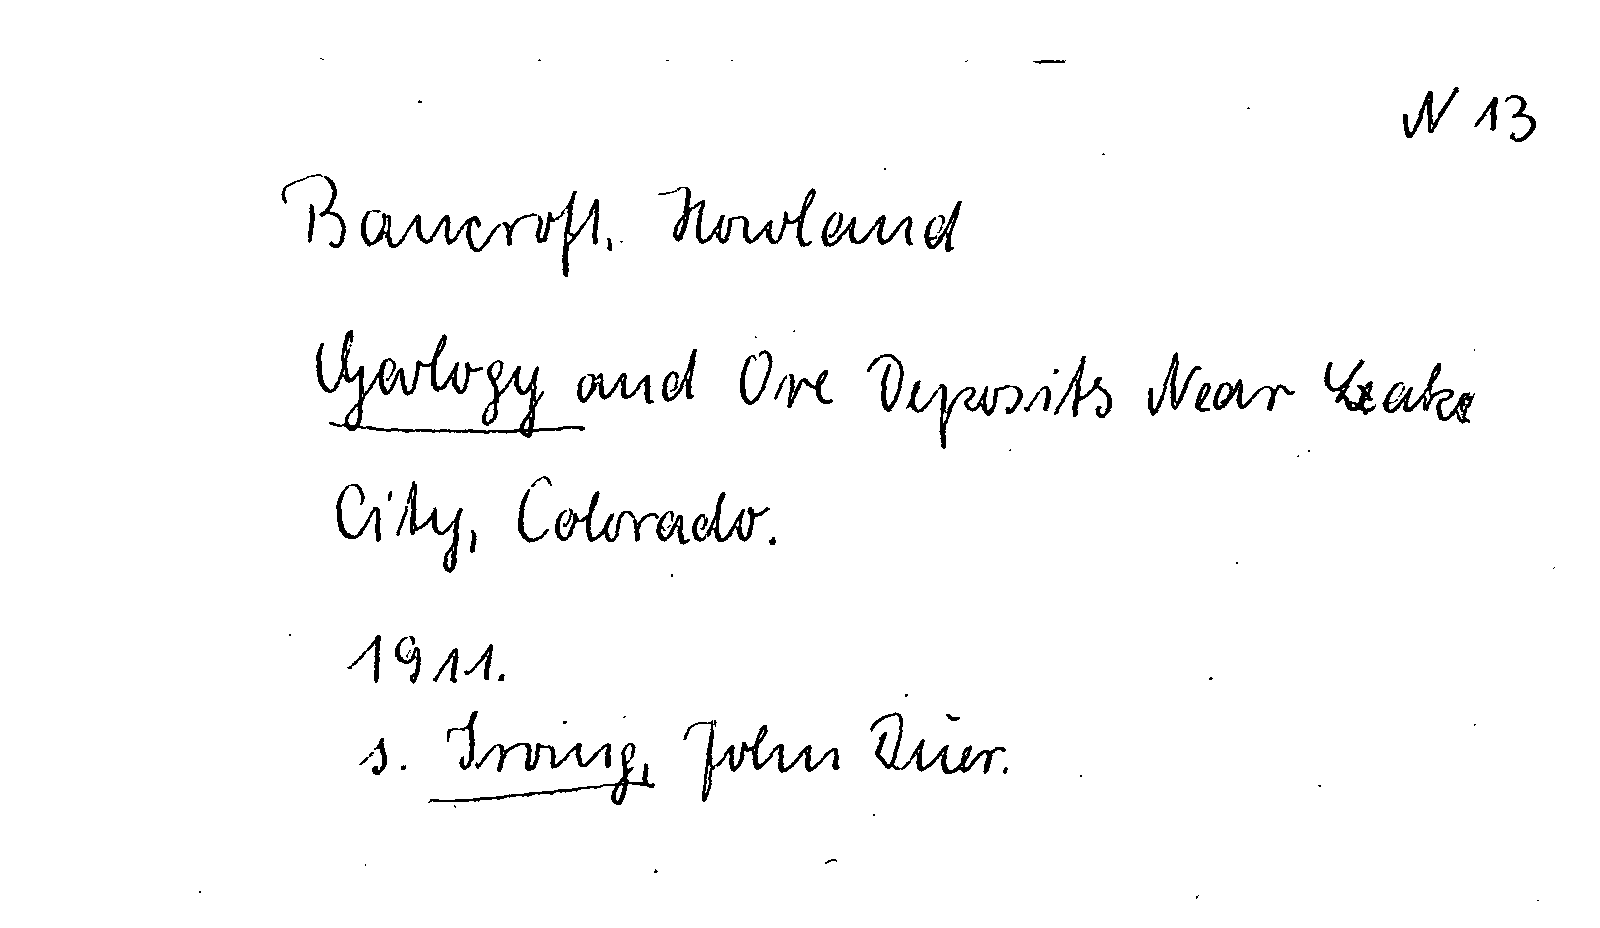 N 13
Bancroft, Howland
Geology and Ore Deposits Near Lake
City, Colorado.
1911.
s. Irving, John Duer.